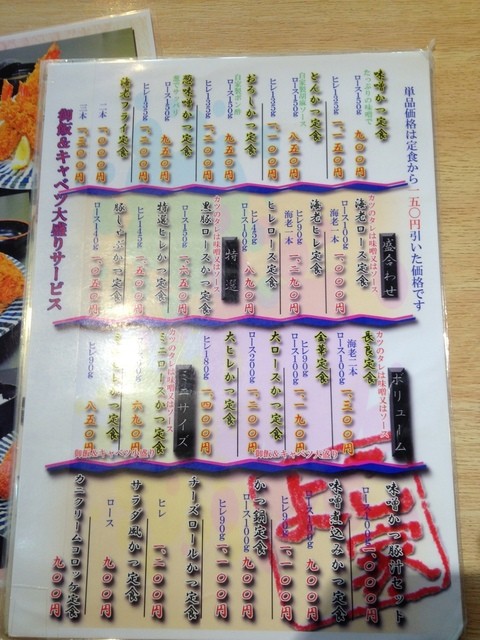 単品価格は定食から一五〇円引いた価格です
味噌かつ定食
たっぷりの味噌で
ロース150g 九五〇円
ヒレ135g 一、二〇〇円
とんかつ定食
自家製胡麻ソース
ロース150g 八五〇円
ヒレ135g 一、一〇〇円
おろしかつ定食
自家製ポン酢
ロース150g 九五〇円
ヒレ135g 一、二〇〇円
葱味噌かつ定食
葱でサッパリ
ロース150g 九五〇円
ヒレ135g 一、二〇〇円
海老フライ定食
二本 一、〇〇〇円
三本
御飯&キャベツ大盛りサービス
盛合わせ
海老ロースかつ定食
カツのタレは味噌又はソース
ロース100g
海老一本 一、〇〇〇円
海老ヒレ定食
ヒレ90g
海老一本
ヒレロースかつ定食
ヒレ45g
ロース100g 八九〇円
特選
黒豚ロースかつ定食
カツのタレは味噌又はソース
ロース150g 一、六五〇円
特選ヒレかつ定食
ヒレ145g 一、五〇〇円
豚しゃぶかつ定食
ロース140g 一、〇五〇円
ボリューム
長良かつ定食
カツのタレは味噌又はソース
海老二本
ロース100g 一、三〇〇円
金華かつ定食
ヒレ90g
ロース100g 一、一九〇円
大ロースかつ定食
ロース200g 一、二〇〇円
大ヒレかつ定食
ヒレ180g 一、四〇〇円
ミニサイズ
ミニロースかつ定食
カツのタレは味噌又はソース
六九〇円
ミニヒレかつ定食
ヒレ90g 八五〇円
御飯&キャベツ大盛り
味噌かつ豚汁セット
ロース100g 一、〇〇〇円
味噌煮込みかつ定食
ロース100g 九〇〇円
ヒレ90g 一、〇〇〇円
かつ鍋定食
ロース100g 九〇〇円
ヒレ90g 一、〇〇〇円
チーズロールかつ定食
一、二〇〇円
サラダ風かつ定食
ヒレ
ロース 九〇〇円
カニクリームコロッケ定食
九〇〇円